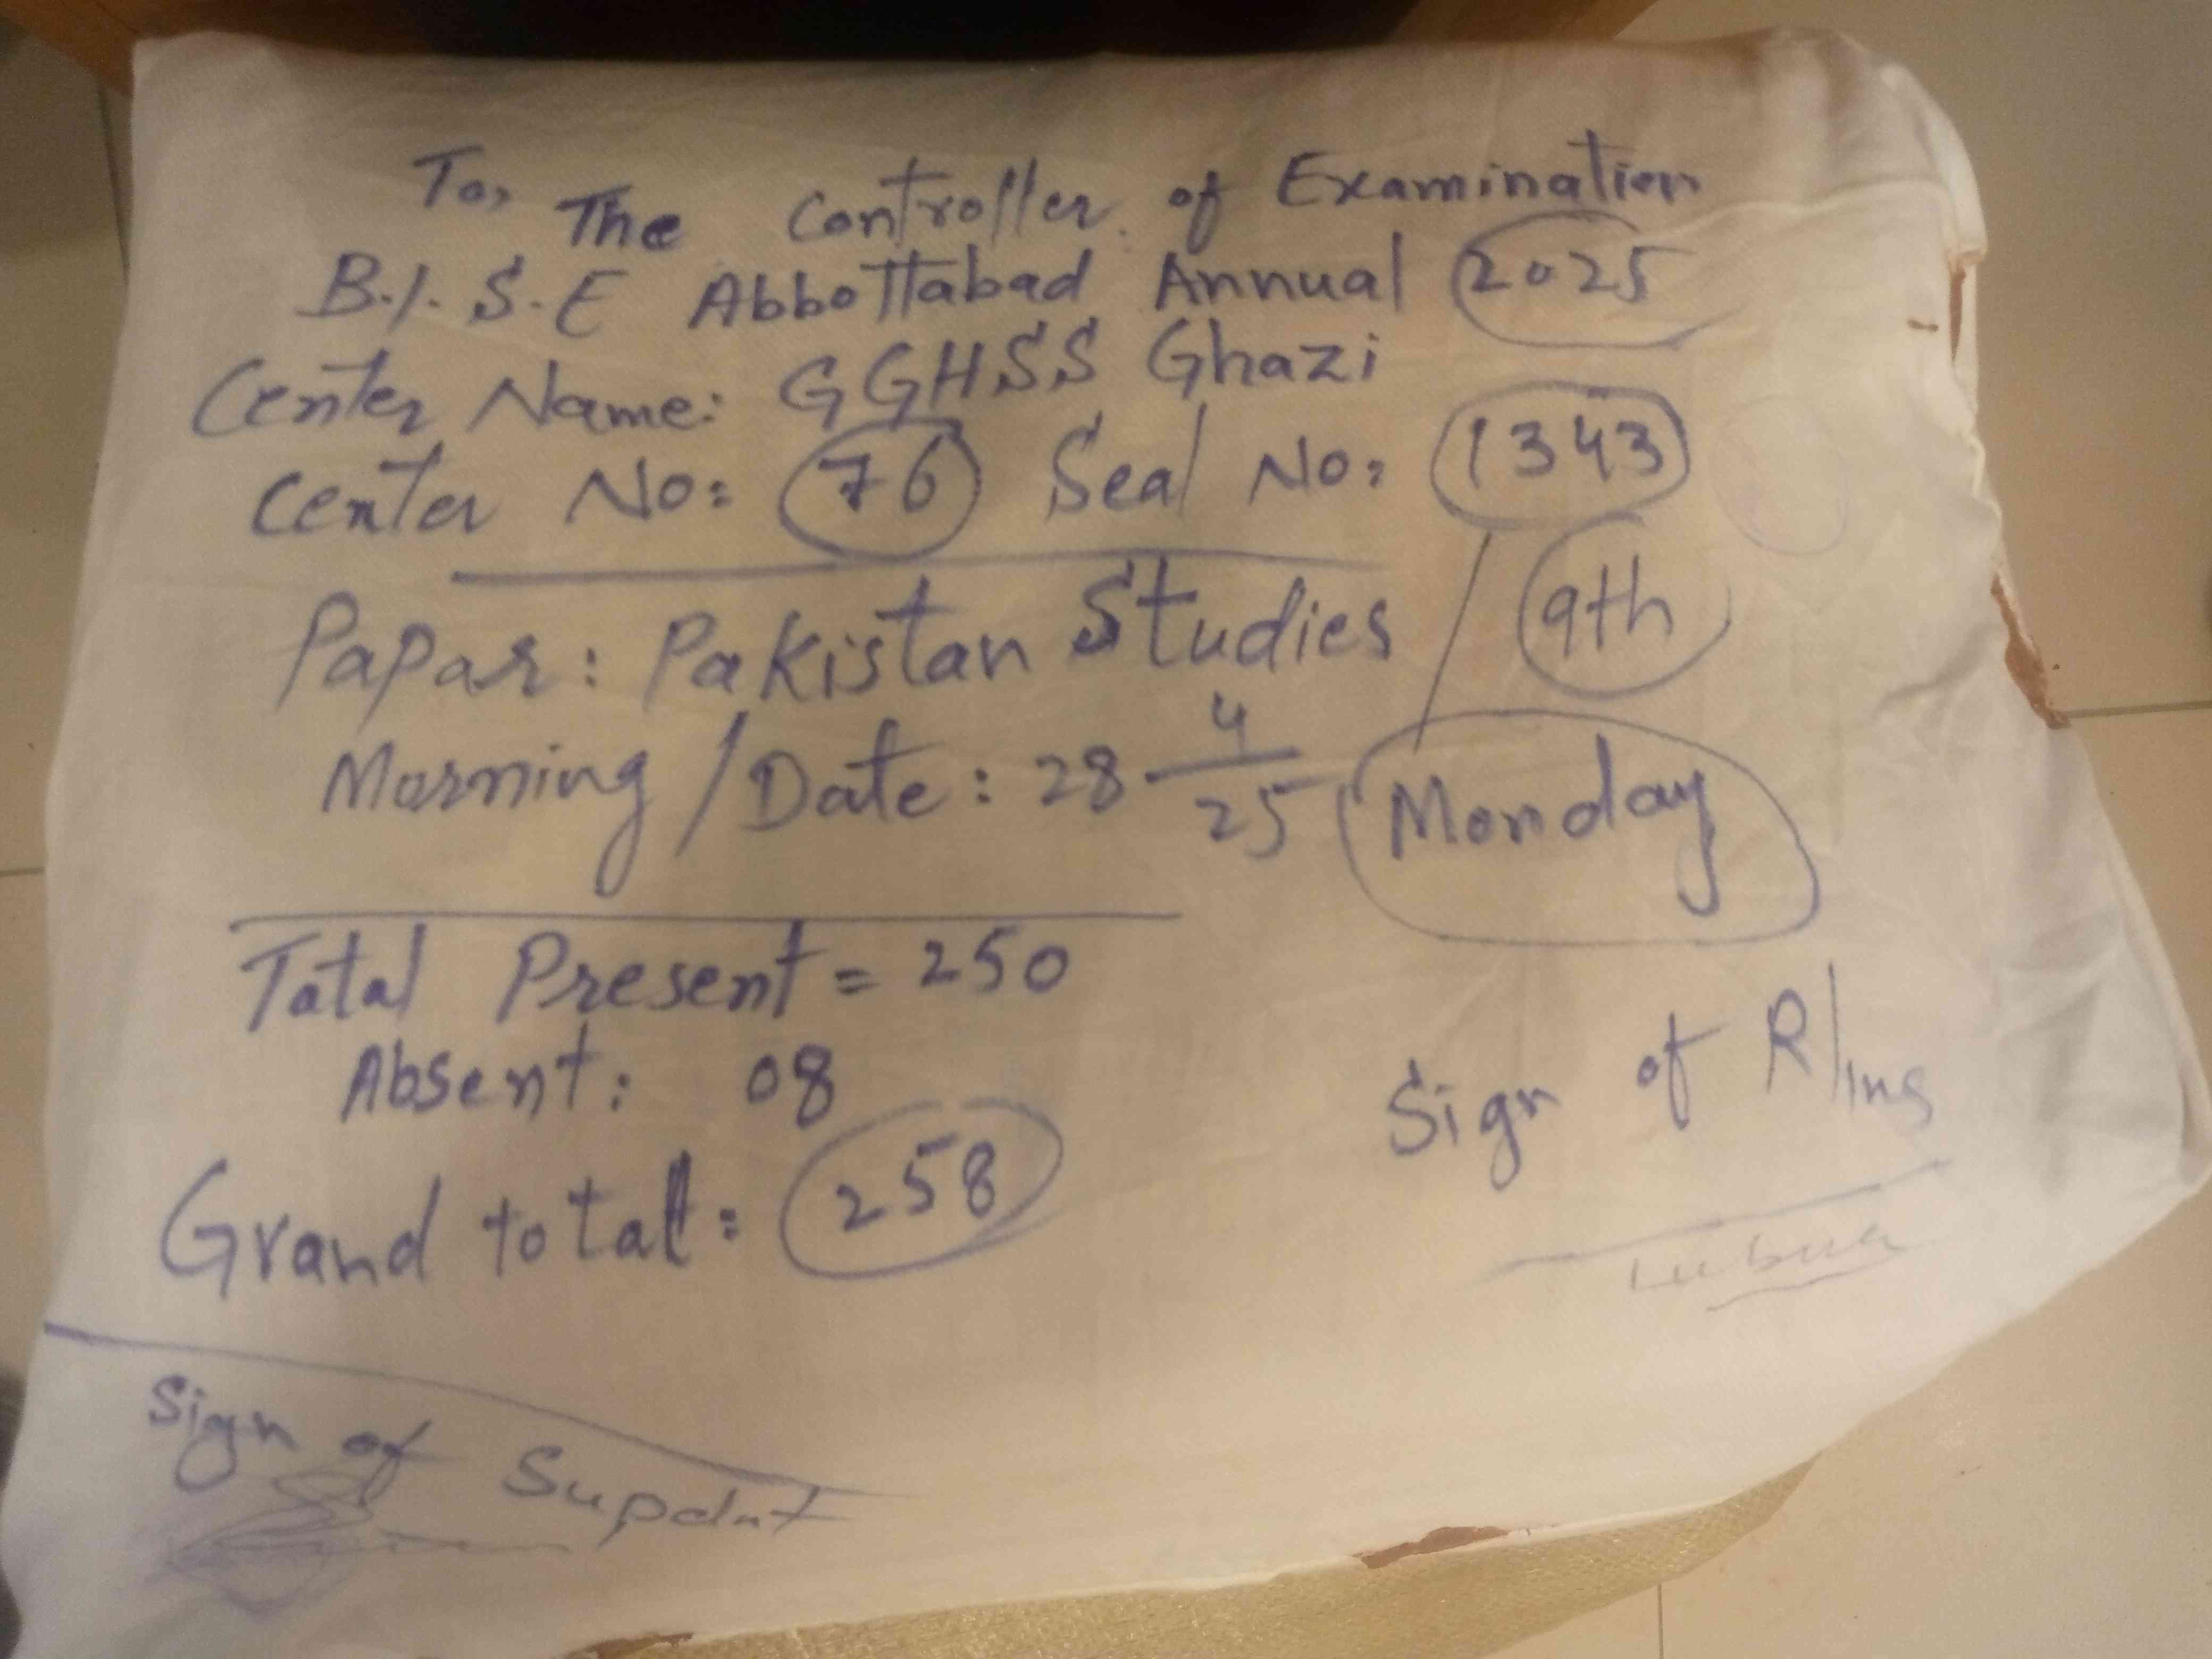 To, The Controller of Examination
B.I.S.E Abbottabad Annual 2025
Center Name: GGHSS Ghazi
Center No: 76 Seal No: 1343
Papar: Pakistan Studies 9th
Morning / Date: 28 4/25 Monday
Total Present = 250
Absent: 08
Grand total: 258
Sign of R/Ins
Sign of Supdnt